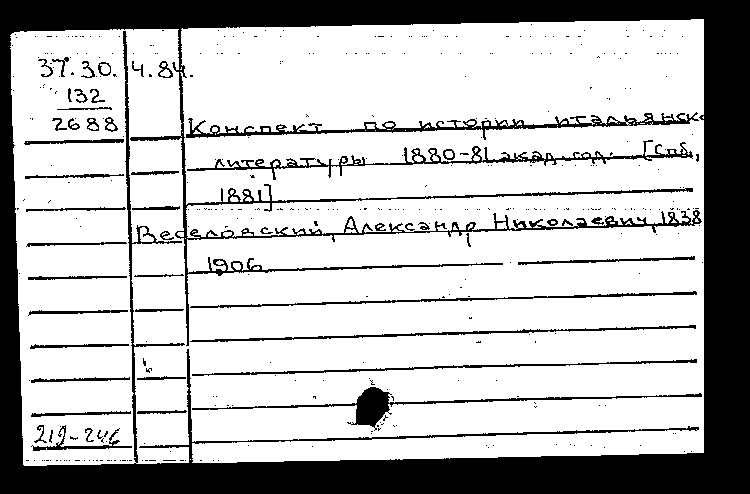 37.30. 4.84.
132
2688
Конспект по истории итальянск
литературы 1880-81 акад. год. [Спб,
1881]
Веселовский, Александр Николаевич, 1838
1906
212-246